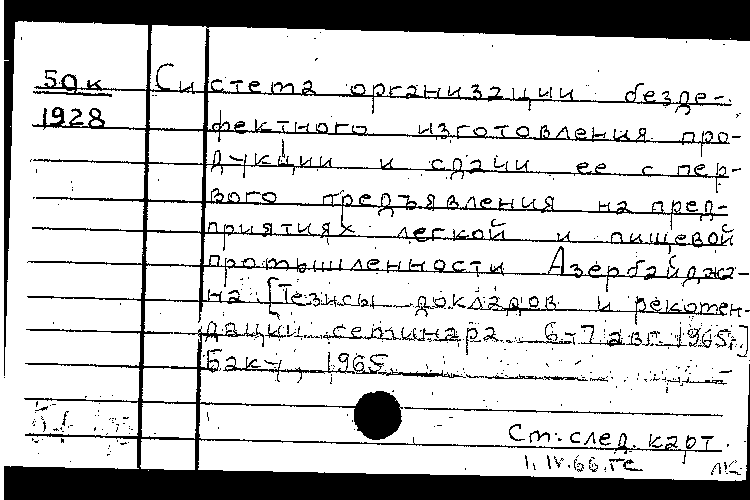 50к Система организации безде-
1928 фектного изготовления про-
дукции и сдачи ее с пер-
вого предъявления на пред-
приятиях легкой и пищевой
промышленности Азербайджа-
на [Тезисы докладов и рекомен-
дации семинара 6-7 авг. 1965г.]
Баку, 1965.
См. след. карт.
1.IV.66.ГС ЛК